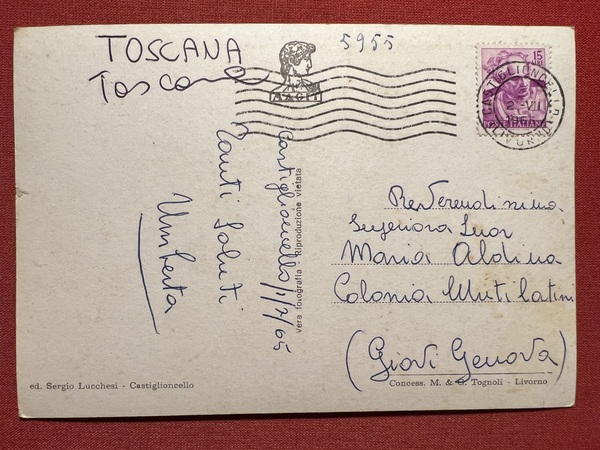 TOSCANA
Toscana
5955
15
CASTIGLIONCELLO
2-VII
1965
LIVORNO
Castiglioncello 1/7/65
Tanti Saluti
Umberta
Vera fotografia - Riproduzione vietata
Reverendissima
Superiora Suor
Maria Aldina
Colonia Mutilatini
(Giovi Genova)
ed. Sergio Lucchesi - Castiglioncello
Concess. M. & G. Tognoli - Livorno